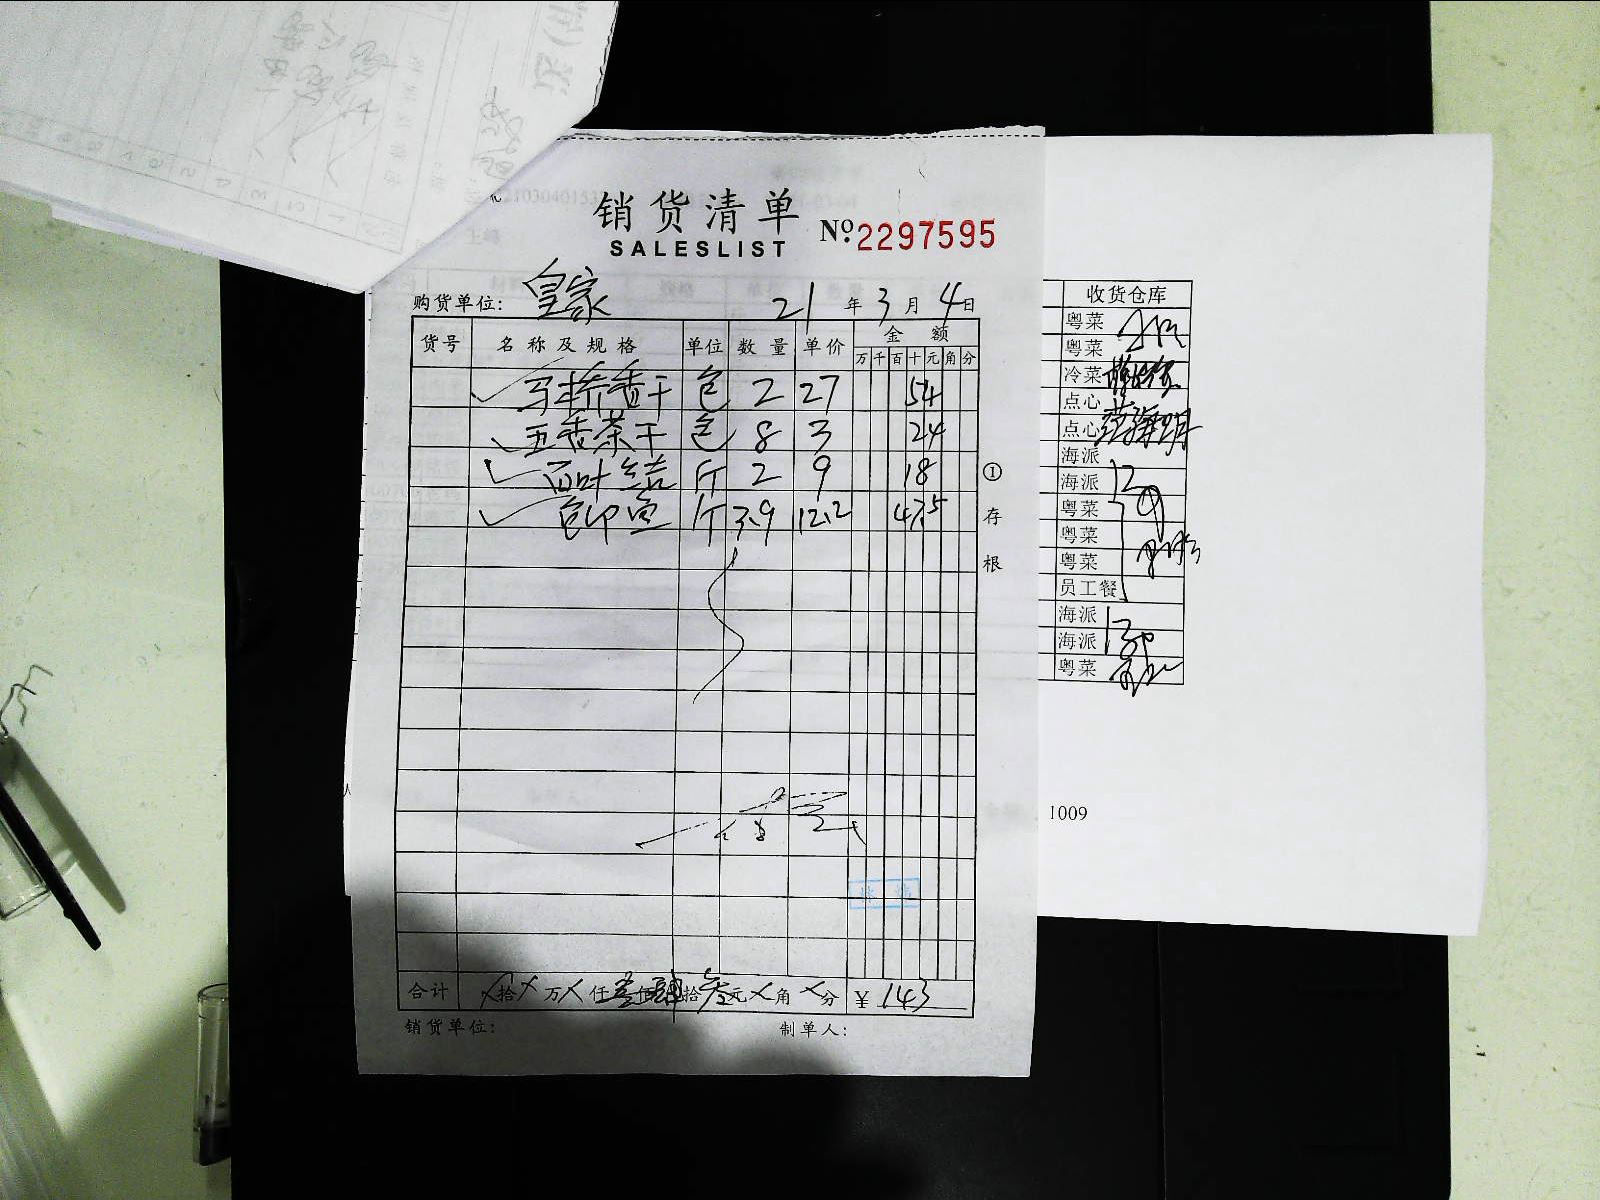 销货清单
SALESLIST
№. 2297595
购货单位: 皇家 21 年 3 月 4 日
货号 名称及规格 单位 数量 单价 金额
万 千 百 十 元 角 分
马桥香干 包 2 27 54
五香茶干 包 8 3 24
百叶结 斤 2 9 18
斤 3.9 12.2 47.5
① 存根
合计 拾 万 仟 壹 佰 肆 拾 叁 元 角 分 ¥ 143
销货单位: 制单人:
收货仓库
粤菜
粤菜
冷菜
点心
点心
海派
海派
粤菜
粤菜
粤菜
员工餐
海派
海派
粤菜
1009